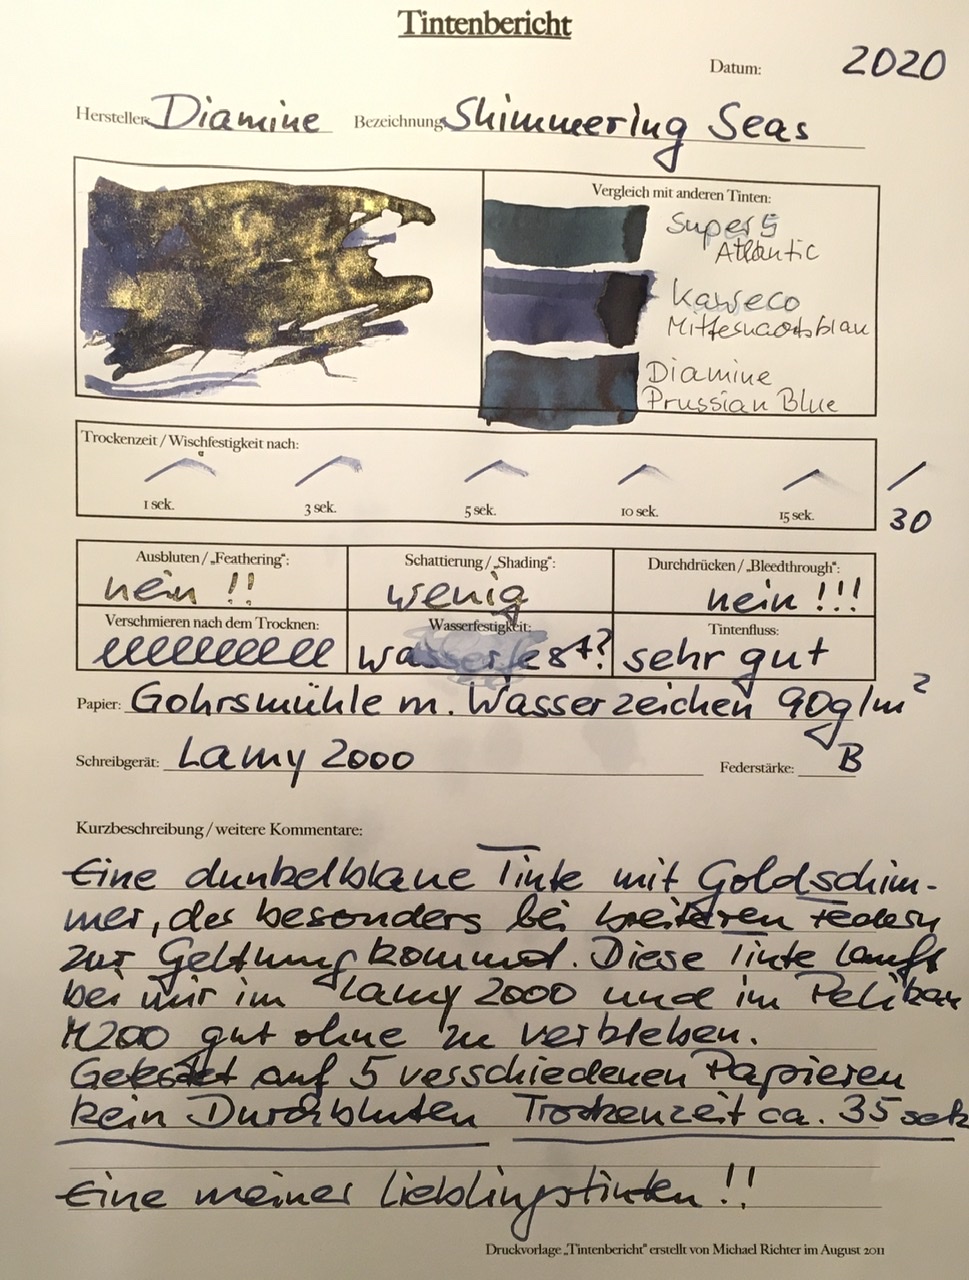 Tintenbericht
Datum: 2020
Hersteller: Diamine Bezeichnung: Shimmering Seas
Vergleich mit anderen Tinten:
Super5
Atlantic
Kaweco
Mitternachtsblau
Diamine
Prussian Blue
Trockenzeit / Wischfestigkeit nach:
1 sek. 3 sek. 5 sek. 10 sek. 15 sek. 30
Ausbluten / „Feathering“: Schattierung / „Shading“: Durchdrücken / „Bleedthrough“:
nein !! wenig nein !!!
Verschmieren nach dem Trocknen: Wasserfestigkeit: Tintenfluss:
wasserfest? sehr gut
Papier: Gohrsmühle m. Wasserzeichen 90g/m²
Schreibgerät: Lamy 2000 Federstärke: B
Kurzbeschreibung / weitere Kommentare:
Eine dunkelblaue Tinte mit Goldschim-
mer, der besonders bei breiteren Federn
zur Geltung kommt. Diese Tinte läuft
bei mir im Lamy 2000 und im Pelikan
M200 gut ohne zu verkleben.
Getestet auf 5 verschiedenen Papieren
kein Durchbluten Trockenzeit ca. 35 sek
Eine meiner Lieblingstinten !!
Druckvorlage „Tintenbericht“ erstellt von Michael Richter im August 2011